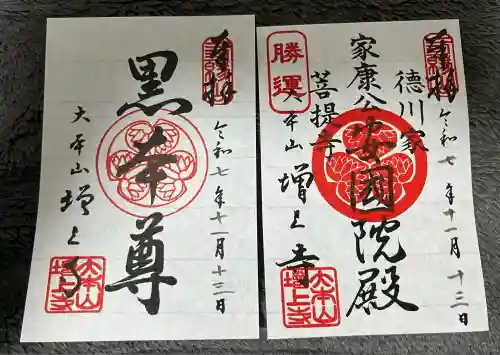 奉拝
令和七年十一月十三日
黒本尊
大本山増上寺
大本山
増上寺
奉拝
令和七年十一月十三日
徳川家
家康公
安国院殿
菩提寺
大本山増上寺
勝運
大本山
増上寺